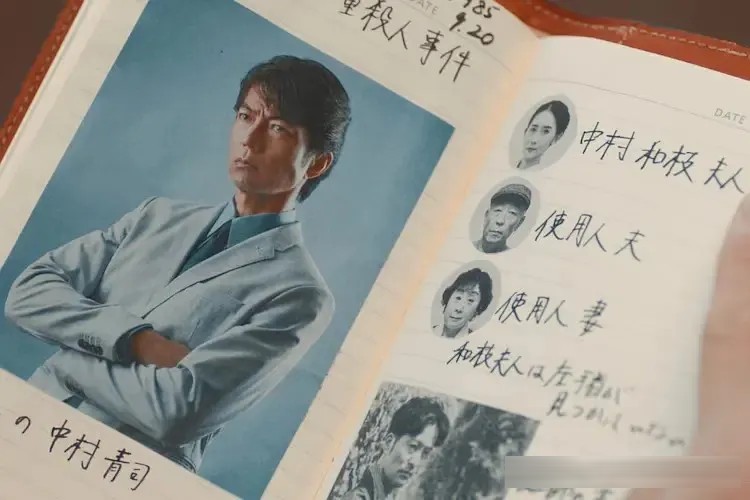 985
DATE 9.20
重殺人事件
の 中村青司
DATE
中村和枝夫人
使用人 夫
使用人 妻
和枝夫人は左腕が
見つかって